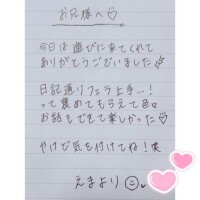 お兄様へ♡
今日は遊びに来てくれて
ありがとうございました
日記通りフェラ上手…!
って褒めてもらえて色々
お話もできて楽しかった♡
やけど気を付けてね!笑
えまより